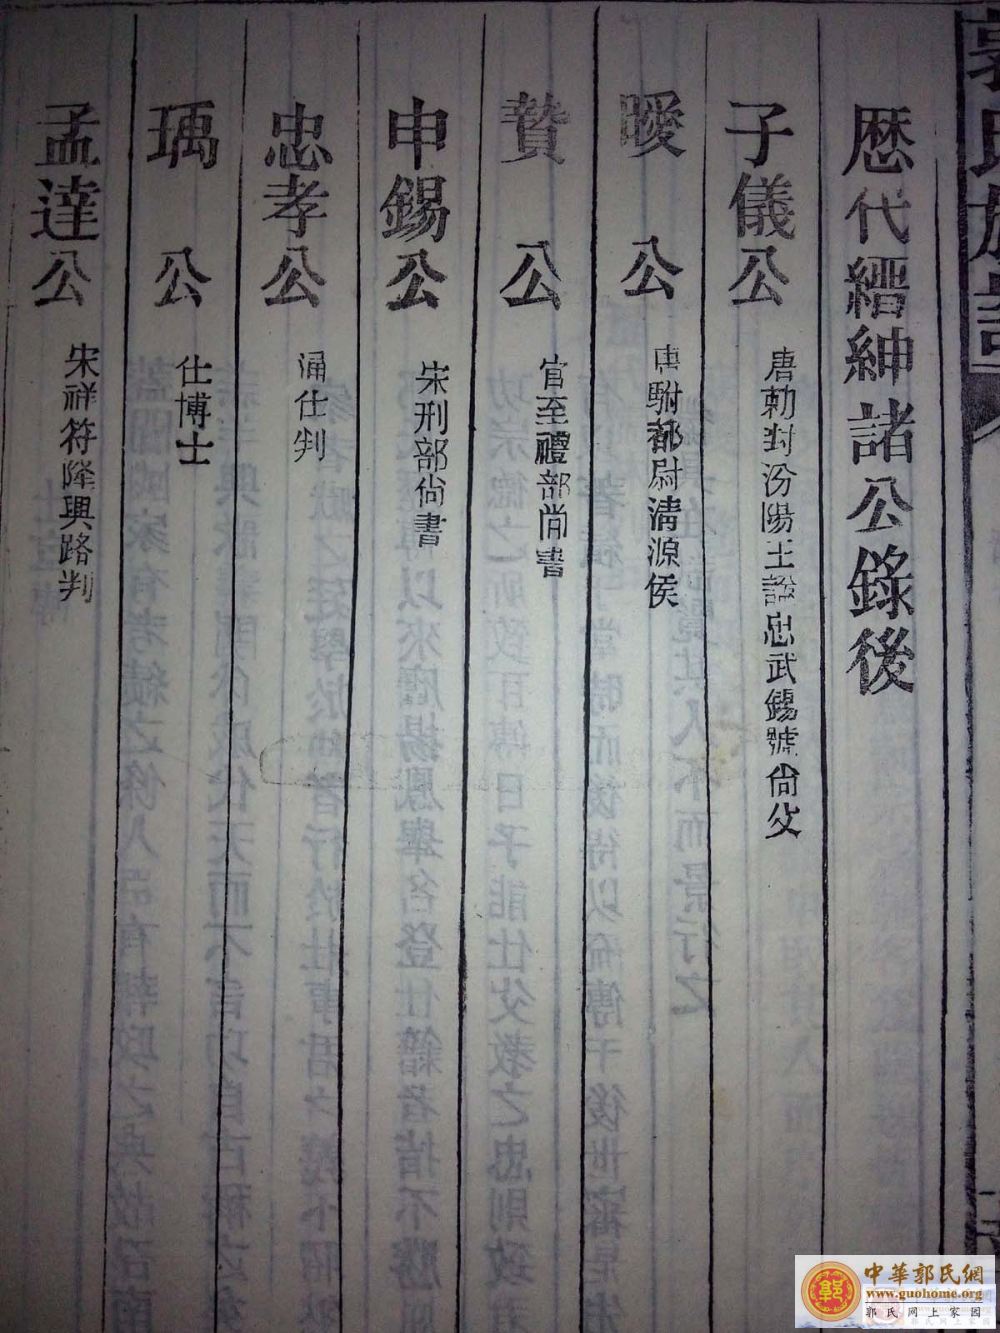 郭氏族譜
歷代縉紳諸公錄後
子儀公 唐勅封汾陽王諡忠武錫號尙父
曖公 唐駙都尉清源侯
贊公 官至禮部尚書
申錫公 宋刑部尙書
忠孝公 涌仕判
瑀公 仕博士
孟達公 宋祥符隆興路判
中華郭氏網
www.guohome.org
郭氏網上家園